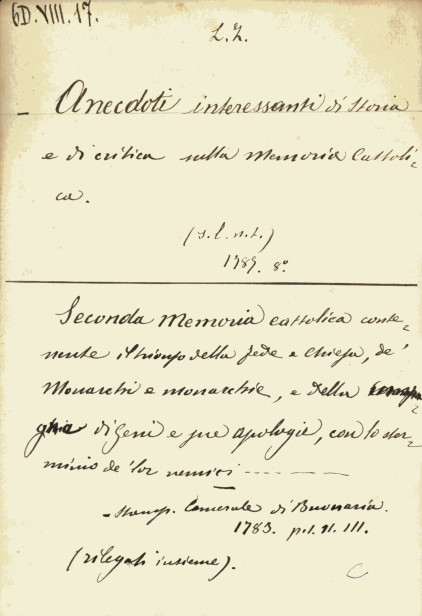 6D.VIII.17.
L.Z.
— Anecdoti interessanti di Storia
e di critica sulla Memoria Cattoli-
ca.
(s.l.n.t.)
1787. 8º
Seconda Memoria cattolica conte-
nente il trionfo della fede e Chiesa, de'
Monarchi e monarchie, e della
di Geni e sue apologie, con lo ster-
minio de' lor nemici -----
- Stamp. Camerale di Buonaria.
1783. p.I. II. III.
(rilegati insieme).
C